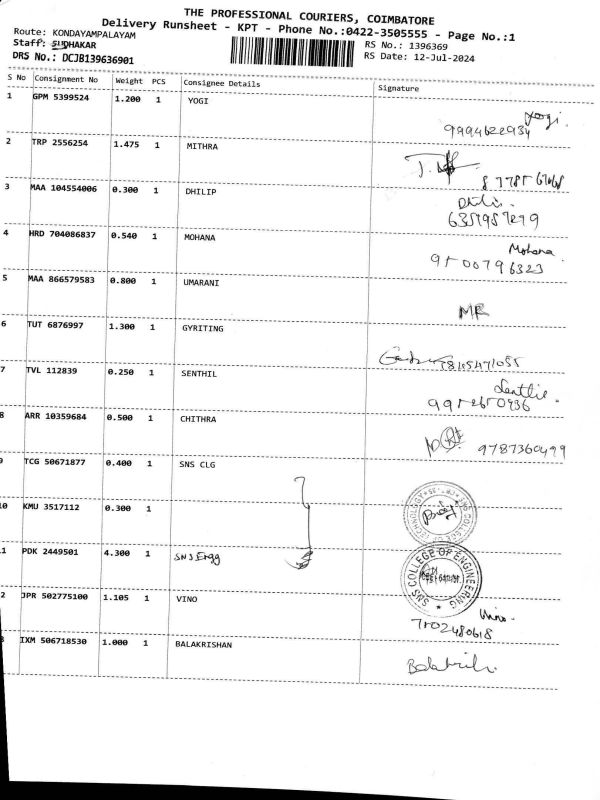 THE PROFESSIONAL COURIERS, COIMBATORE
Delivery Runsheet - KPT - Phone No.:0422-3505555 - Page No.:1
Route: KONDAYAMPALAYAM
Staff: SUDHAKAR
DRS No.: DCJB139636901
RS No.: 1396369
RS Date: 12-Jul-2024
S No Consignment No Weight PCS Consignee Details Signature
1 GPM 5399524 1.200 1 YOGI Yogi.
9994622934
2 TRP 2556254 1.475 1 MITHRA
3 MAA 104554006 0.300 1 DHILIP Dhilip.
4 HRD 704086837 0.540 1 MOHANA Mohana
9500796323
5 MAA 866579583 0.800 1 UMARANI
6 TUT 6876997 1.300 1 GYRITING
7 TVL 112839 0.250 1 SENTHIL
8 ARR 10359684 0.500 1 CHITHRA 9787360499
9 TCG 50671877 0.400 1 SNS CLG
10 KMU 3517112 0.300 1
11 PDK 2449501 4.300 1 SNS Engg
SNS COLLEGE OF ENGINEERING
12 JPR 502775100 1.105 1 VINO Vino.
7502480618
13 IXM 506718530 1.000 1 BALAKRISHAN